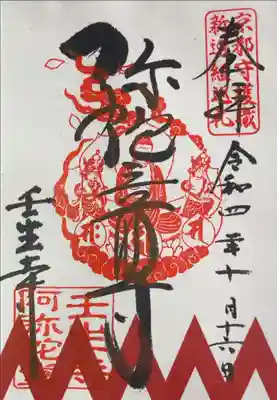 奉拝
京都守護職
新選組
令和四年十月十六日
弥陀三尊
壬生寺
壬生寺
阿弥陀堂